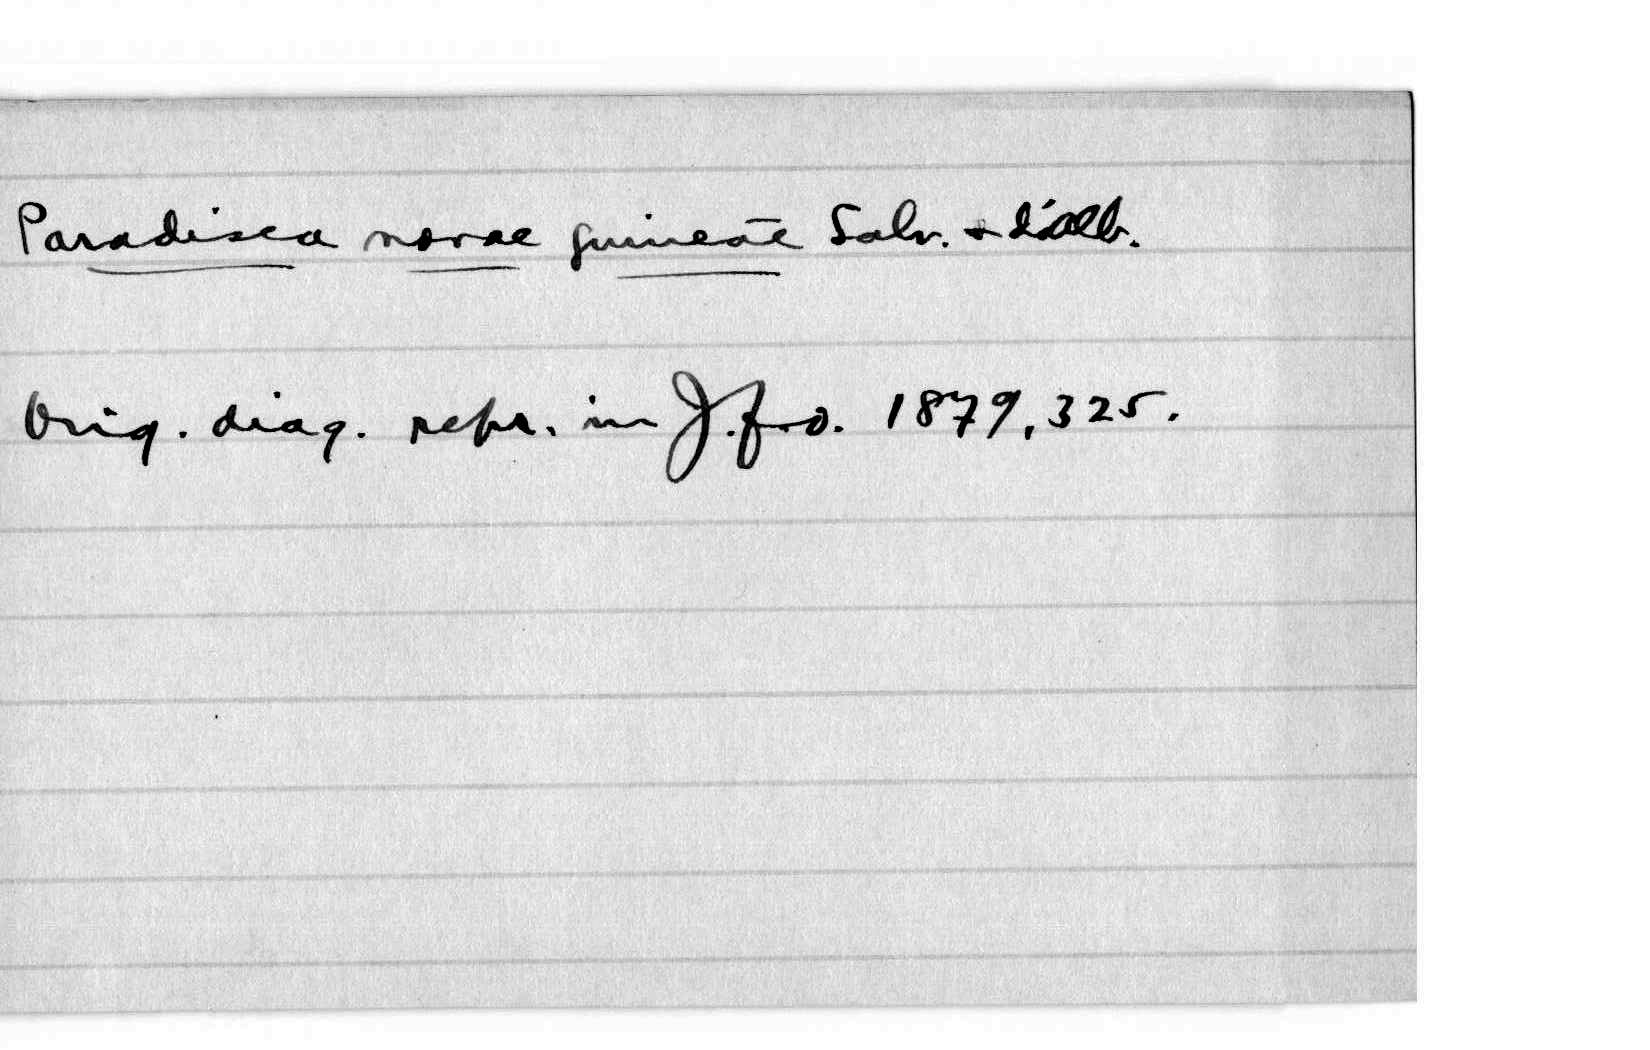 Paradisea novae guineae Salv. & d'alb.
Orig. diag. repr. in J.f.o. 1879, 325.